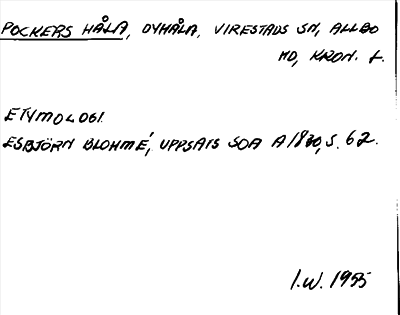 POCKERS HÅLA, DYHÅLA, VIRESTADS SN, ALLBO
HD, KRON. L.
ETYMOLOGI.
ESBJÖRN BLOHMÉ, UPPSATS SOA A1830, S. 62.
I.W. 1955